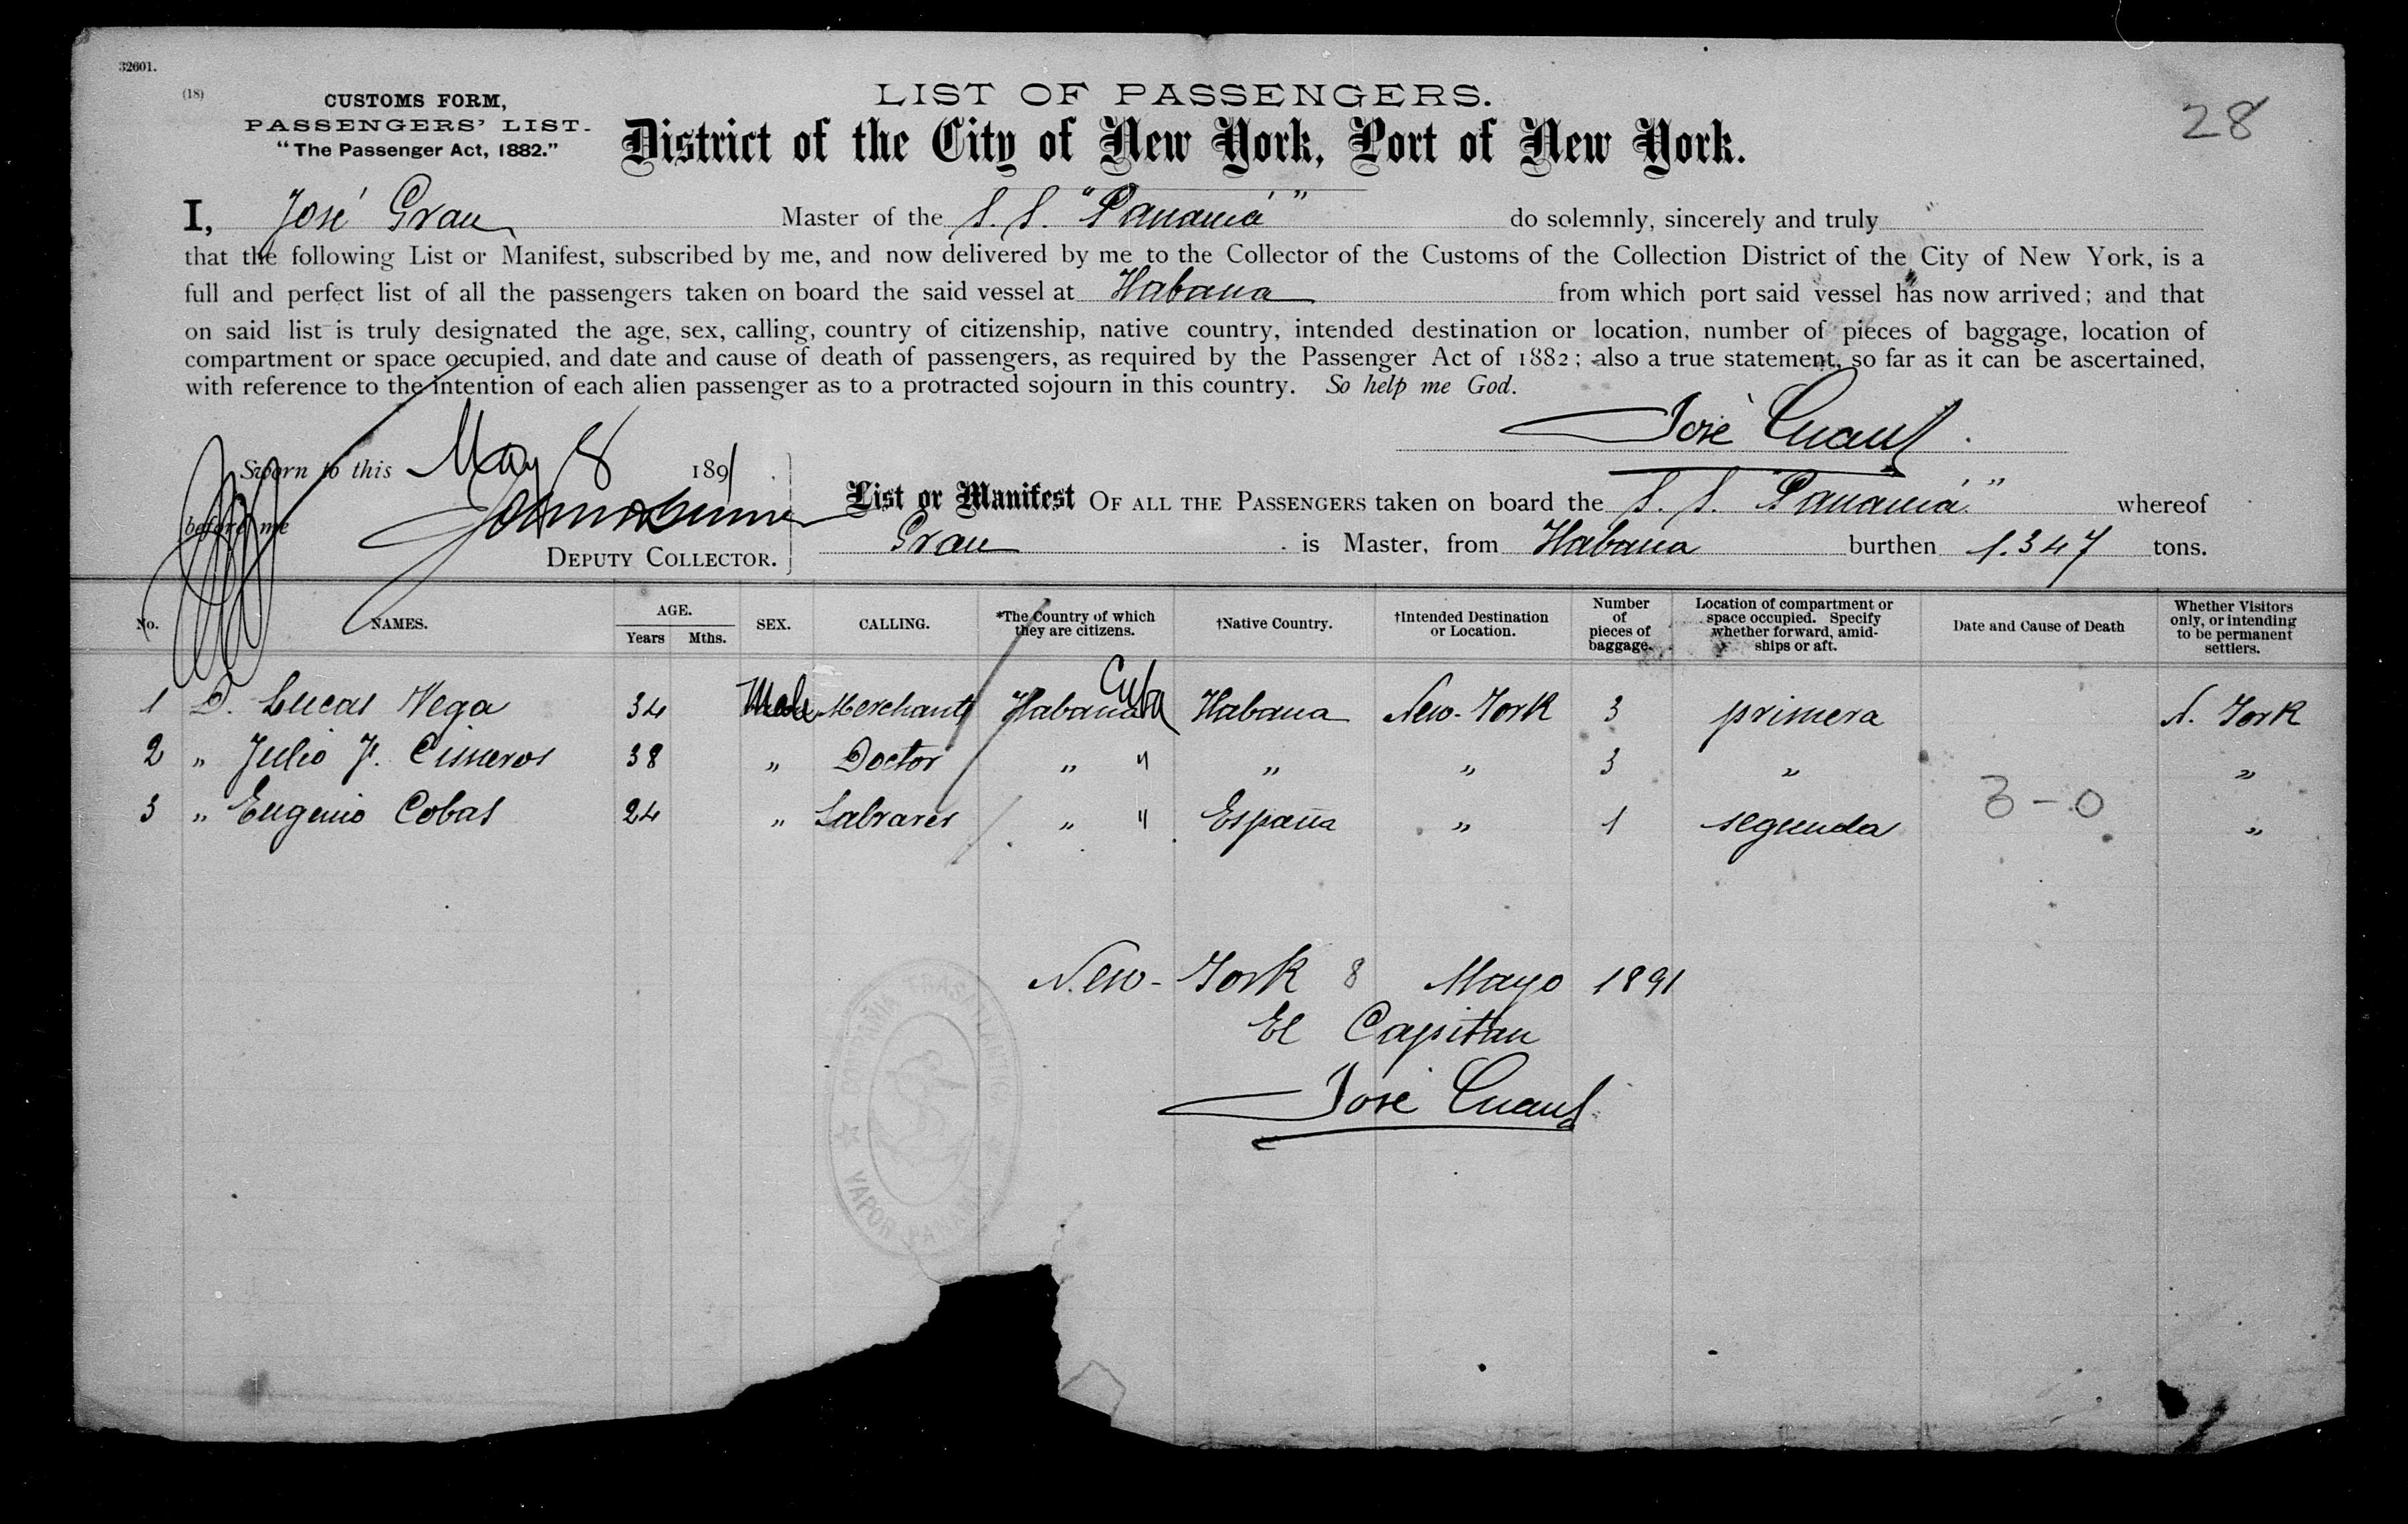 32601.
(18)
CUSTOMS FORM,
PASSENGERS' LIST.
"The Passenger Act, 1882."
LIST OF PASSENGERS.
District of the City of New York, Port of New York.
28
I, José Grau Master of the S. S. "Panamá" do solemnly, sincerely and truly
that the following List or Manifest, subscribed by me, and now delivered by me to the Collector of the Customs of the Collection District of the City of New York, is a
full and perfect list of all the passengers taken on board the said vessel at Habana from which port said vessel has now arrived; and that
on said list is truly designated the age, sex, calling, country of citizenship, native country, intended destination or location, number of pieces of baggage, location of
compartment or space occupied, and date and cause of death of passengers, as required by the Passenger Act of 1882; also a true statement, so far as it can be ascertained,
with reference to the intention of each alien passenger as to a protracted sojourn in this country. So help me God.
José Grau
Sworn to this May 8 1891
before me
DEPUTY COLLECTOR.
List or Manifest OF ALL THE PASSENGERS taken on board the S. S. "Panamá" whereof
Grau is Master, from Habana burthen 1.347 tons.
No. NAMES. AGE. Years Mths. SEX. CALLING. *The Country of which they are citizens. †Native Country. †Intended Destination or Location. Number of pieces of baggage. Location of compartment or space occupied. Specify whether forward, amidships or aft. Date and Cause of Death Whether Visitors only, or intending to be permanent settlers.
1 D. Lucas Vega 34 Male Merchant Habana Cuba Habana New-York 3 primera N. York
2 " Julio F. Cisneros 38 " Doctor " " " " 3 " "
3 " Eugenio Cobas 24 " " " España " 1 segunda "
3-0
New-York 8 Mayo 1891
El Capitan
José Grau
COMPAÑIA TRASATLANTICA
VAPOR PANAMA